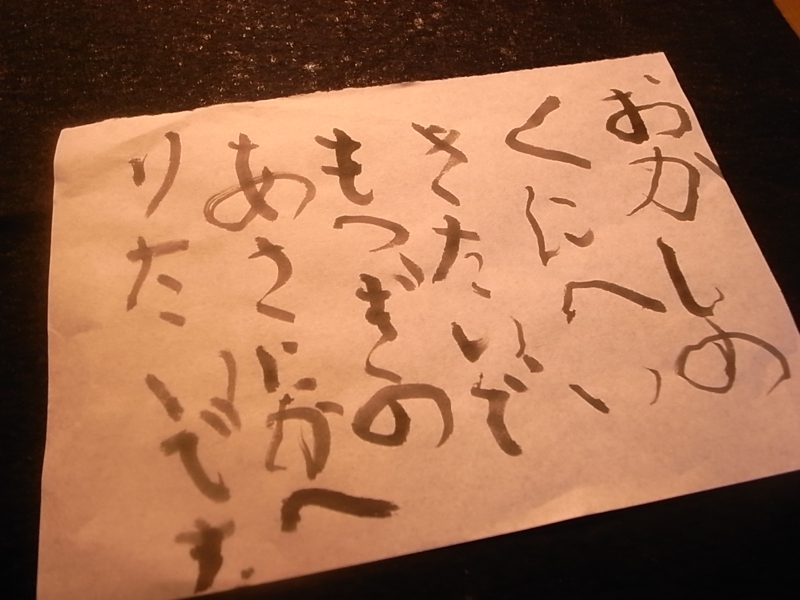 おかしの
くにへい
きたいで
もつぎの
あさにかへ
りたいです.